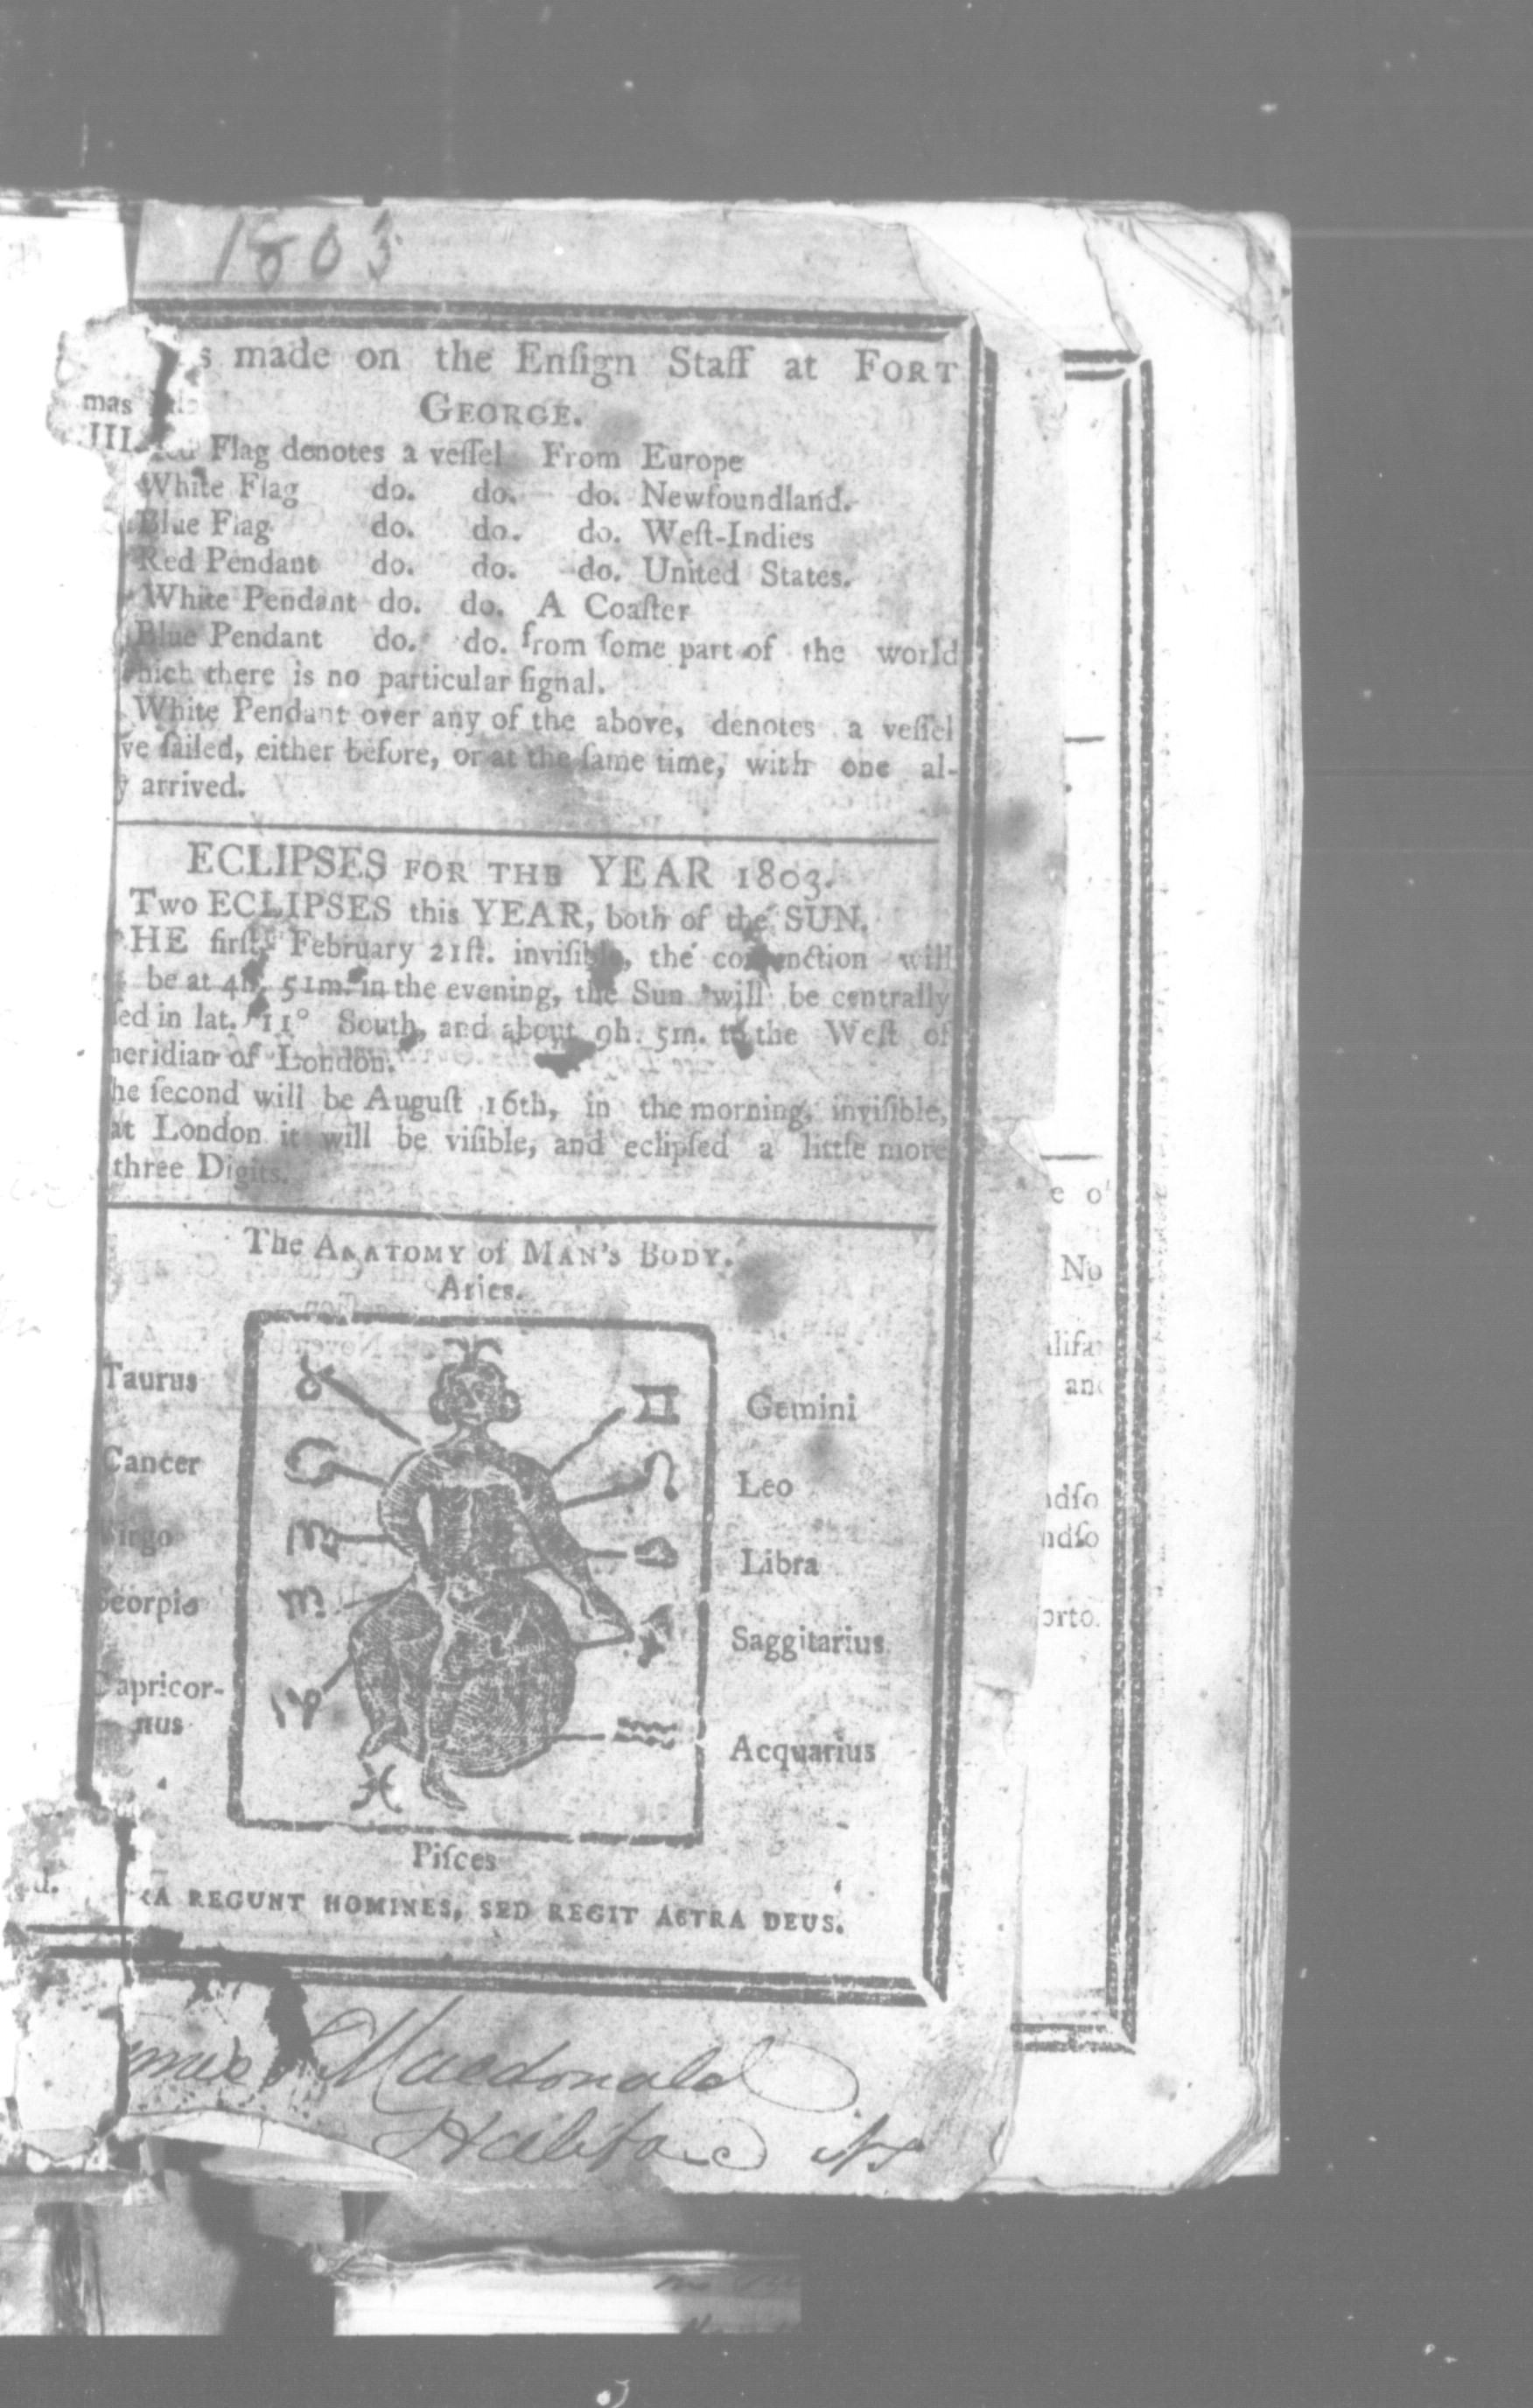 1803
s made on the Enſign Staff at FORT
GEORGE.
mas
III.
Flag denotes a veſſel From Europe
White Flag do. do. do. Newfoundland.
Blue Flag do. do. do. Weſt-Indies
Red Pendant do. do. do. United States.
White Pendant do. do. A Coaſter
Blue Pendant do. do. from ſome part of the world
hich there is no particular ſignal.
White Pendant over any of the above, denotes a veſſel
ve ſailed, either before, or at the ſame time, with one al-
y arrived.
ECLIPSES FOR THE YEAR 1803.
Two ECLIPSES this YEAR, both of the SUN.
HE firſt, February 21ſt. inviſible, the conjunction will
be at 4h. 51m. in the evening, the Sun will be centrally
ſed in lat. 11° South, and about 9h. 5m. to the Weſt of
meridian of London.
he ſecond will be Auguſt 16th, in the morning, inviſible,
at London it will be viſible, and eclipſed a little more
three Digits.
The ANATOMY of MAN'S BODY.
Aries.
Taurus
Gemini
Cancer
Leo
Virgo
Libra
Scorpio
Saggitarius
Capricor-
nus
Acquarius
Piſces
RA REGUNT HOMINES, SED REGIT ASTRA DEUS.
Macdonald
Halifax NS
e o
No
alifa
and
ndſo
ndſo
orto.